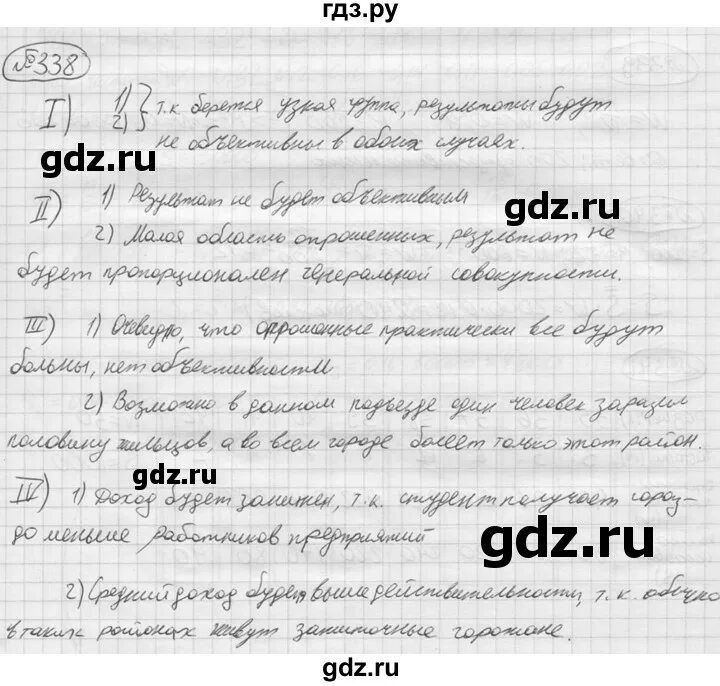 гдз.ру
№338
I) 1) 2) } т.к берется узкая группа, результаты будут
не объективны в обоих случаях.
gdz.ru
gdz.ru
II) 1) Результат не будет объективным
gdz.ru
2) Малая область опрошенных, результат не
будет пропорционален генеральной совокупности.
III) 1) Очевидно, что опрошенные практически все будут
больны, нет объективности
gdz.ru
2) Возможно в данном подъезде один человек заразил
половину жильцов, а во всем городе болеет только этот район.
gdz.ru
IV) 1) Доход будет занижен, т.к. студент получает гораз-
до меньше работников предприятий
gdz.ru
2) Средний доход будет выше действительности, т.к. обычно
в таких районах живут зажиточные горожане.
gdz.ru
gdz.ru